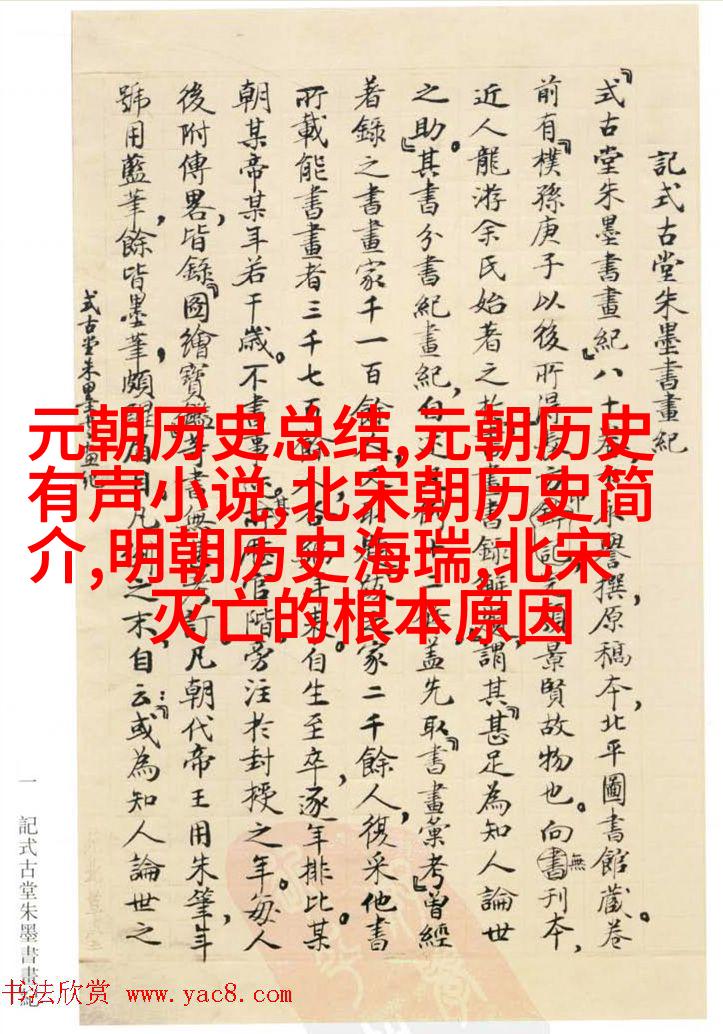 記式古堂朱墨書畫紀
『式古堂朱墨書畫紀』八十卷
譽撰,原稿本,北平圖書館藏。卷
前有『樸孫庚子以後所得
景賢故物也。向無書刊本,
近人龍游余氏始著之
書畫書錄解題,謂其『甚足為知人論世
之助。』其書分書紀畫紀,
蓋先取『書畫彙考』曾經
著錄之書畫家千一百餘
家二千餘人,復采他書
所載能書畫者三千七百餘人,各
自生至卒,逐年排比某
朝某帝某年若干歲。不書
官階,旁注於封授之年。每人
後附傳畧,皆錄『圖繪寶鑑』等書
凡朝代帝王用朱筆,年
號用藍筆,餘皆墨筆,頗醒眉目。凡
之末,自云:『或為知人論世之
式古堂朱墨書畫紀
一
記式古堂朱墨書畫紀
元朝历史总结,元朝历史
有声小说,北宋朝历史简
介,明朝历史海瑞,北宋
灭亡的根本原因
书法欣赏 www.yac8.com